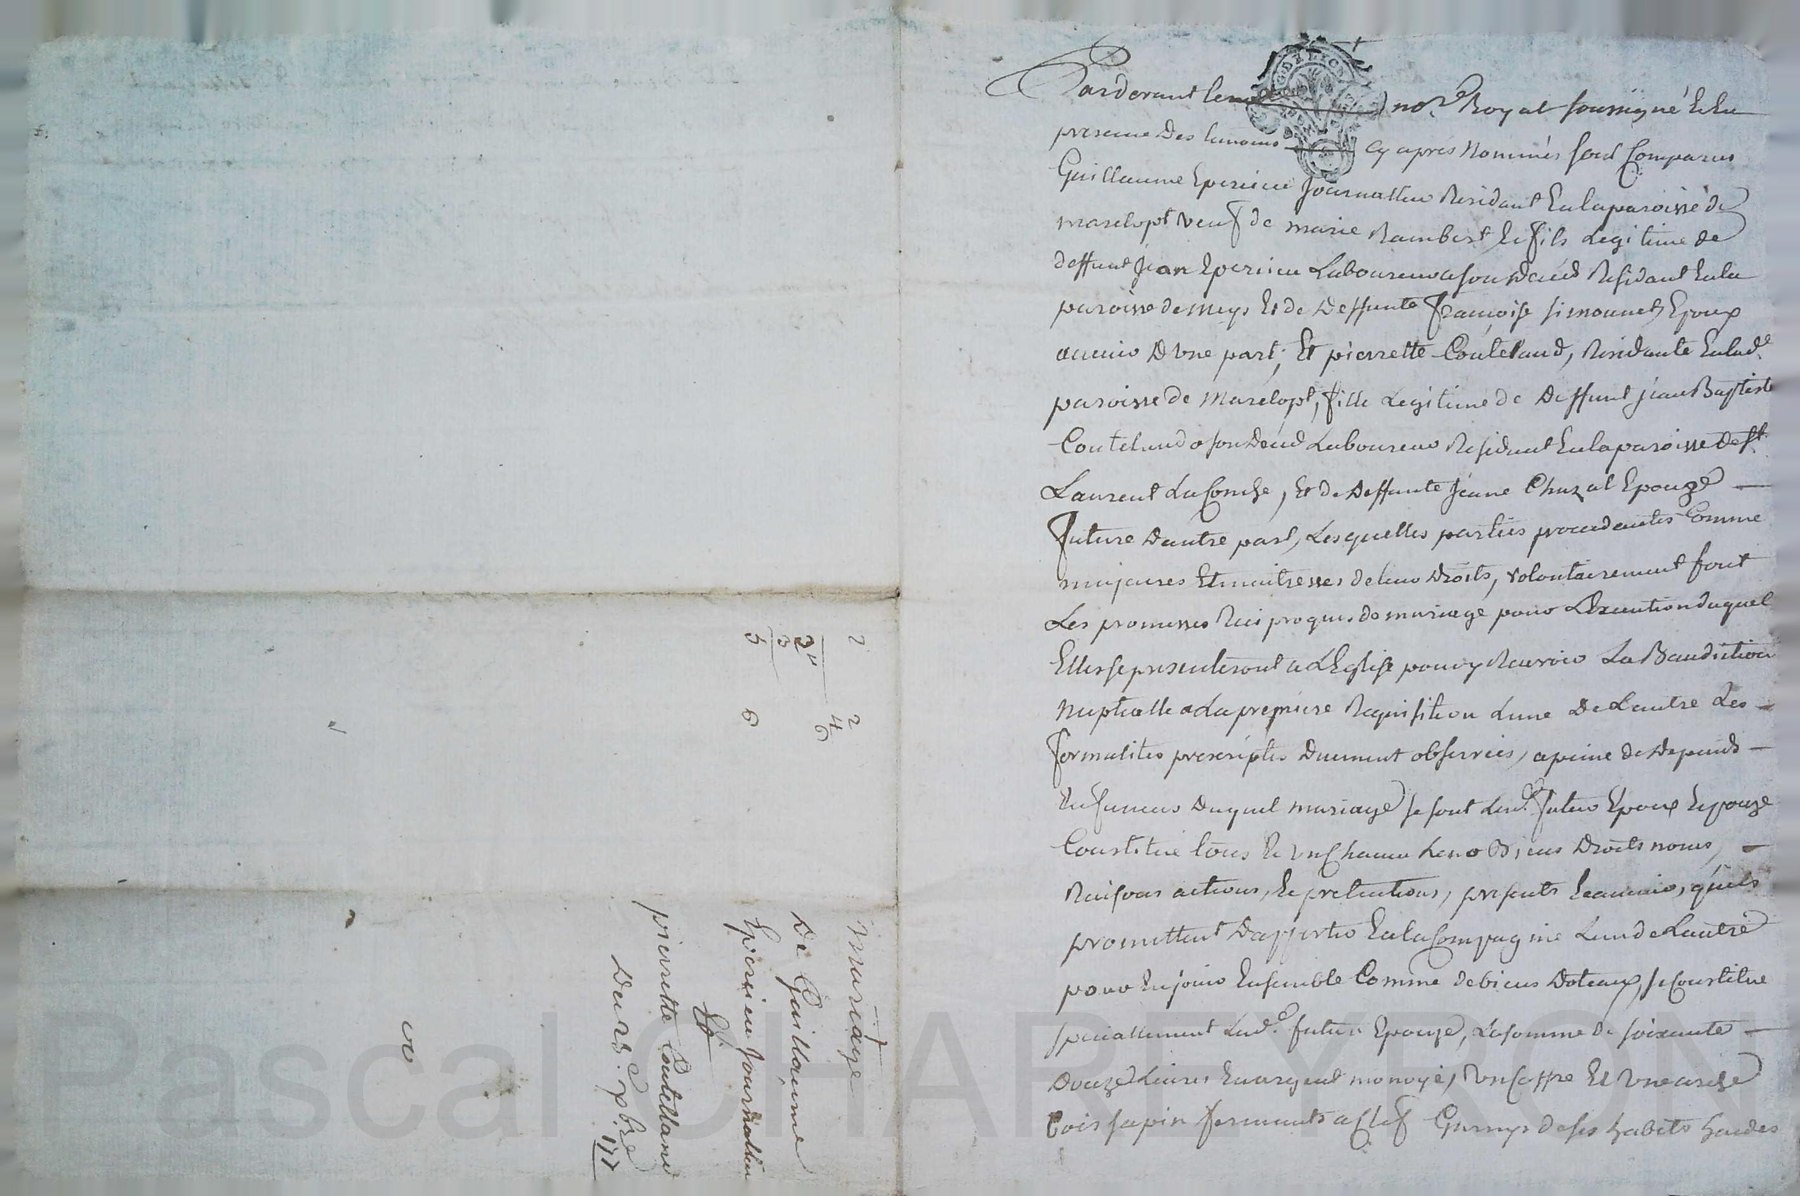 Pardevant le no.re Royal soussigné Et En
presence Des temoins cy apres Nommés sont Comparus
Guillaume Eperieu Journallier Residant En la paroisse de
marclopt veuf de marie Rambert Et fils Legitime de
deffunt Jean Eperieu Laboureur a son Deced Residant En la
paroisse de meys Et de Deffunte françoise simonnet, Epoux
avenir D'Une part; Et pierrette Coutelaud, Residante En lad.e
paroisse de Marclopt, fille Legitime de Deffunt jean Baptiste
Coutelaud a son Deced Laboureur Residant En la paroisse de st
Laurent La Conche, Et de Deffunte Jeane Chazal Epouze
future Dautre part, Lesquelles parties procedantes Comme
majeures Et maitresses de leur Droits, volontairement font
Les promesses Reciproques de mariage pour L'Execution duquel
Elles se presenteront a L'Eglise pour y Recevoir La Benediction
Nuptialle a La premiere Requisition Lune De Lautre Les
formalites prescriptes Duement observées, a peine de Depends
En faveur Duquel mariage se sont Lesd. futur Epoux Epouze
Constitué tous Et Un Chacun Leur Biens Droits noms,
Raisons actions, Et pretentions, presents Et avenir, quils
promettent D'apporter En la Compagnie Lun de Lautre
pour En jouir Ensemble Comme de biens Dotaux, se Constitue
specialement Lad.e future Epouze, La somme de soixante
Douze Livres En argent monoyé, Un coffre Et Une arche
bois sapin fermants a Clef Garnys de ses habits hardes
2 2
4
2 6
3
5 6
Mariage
De Guillaume
Eperieu Journalier
Et
pierrette Coutellaud
Du 25. 7bre 177